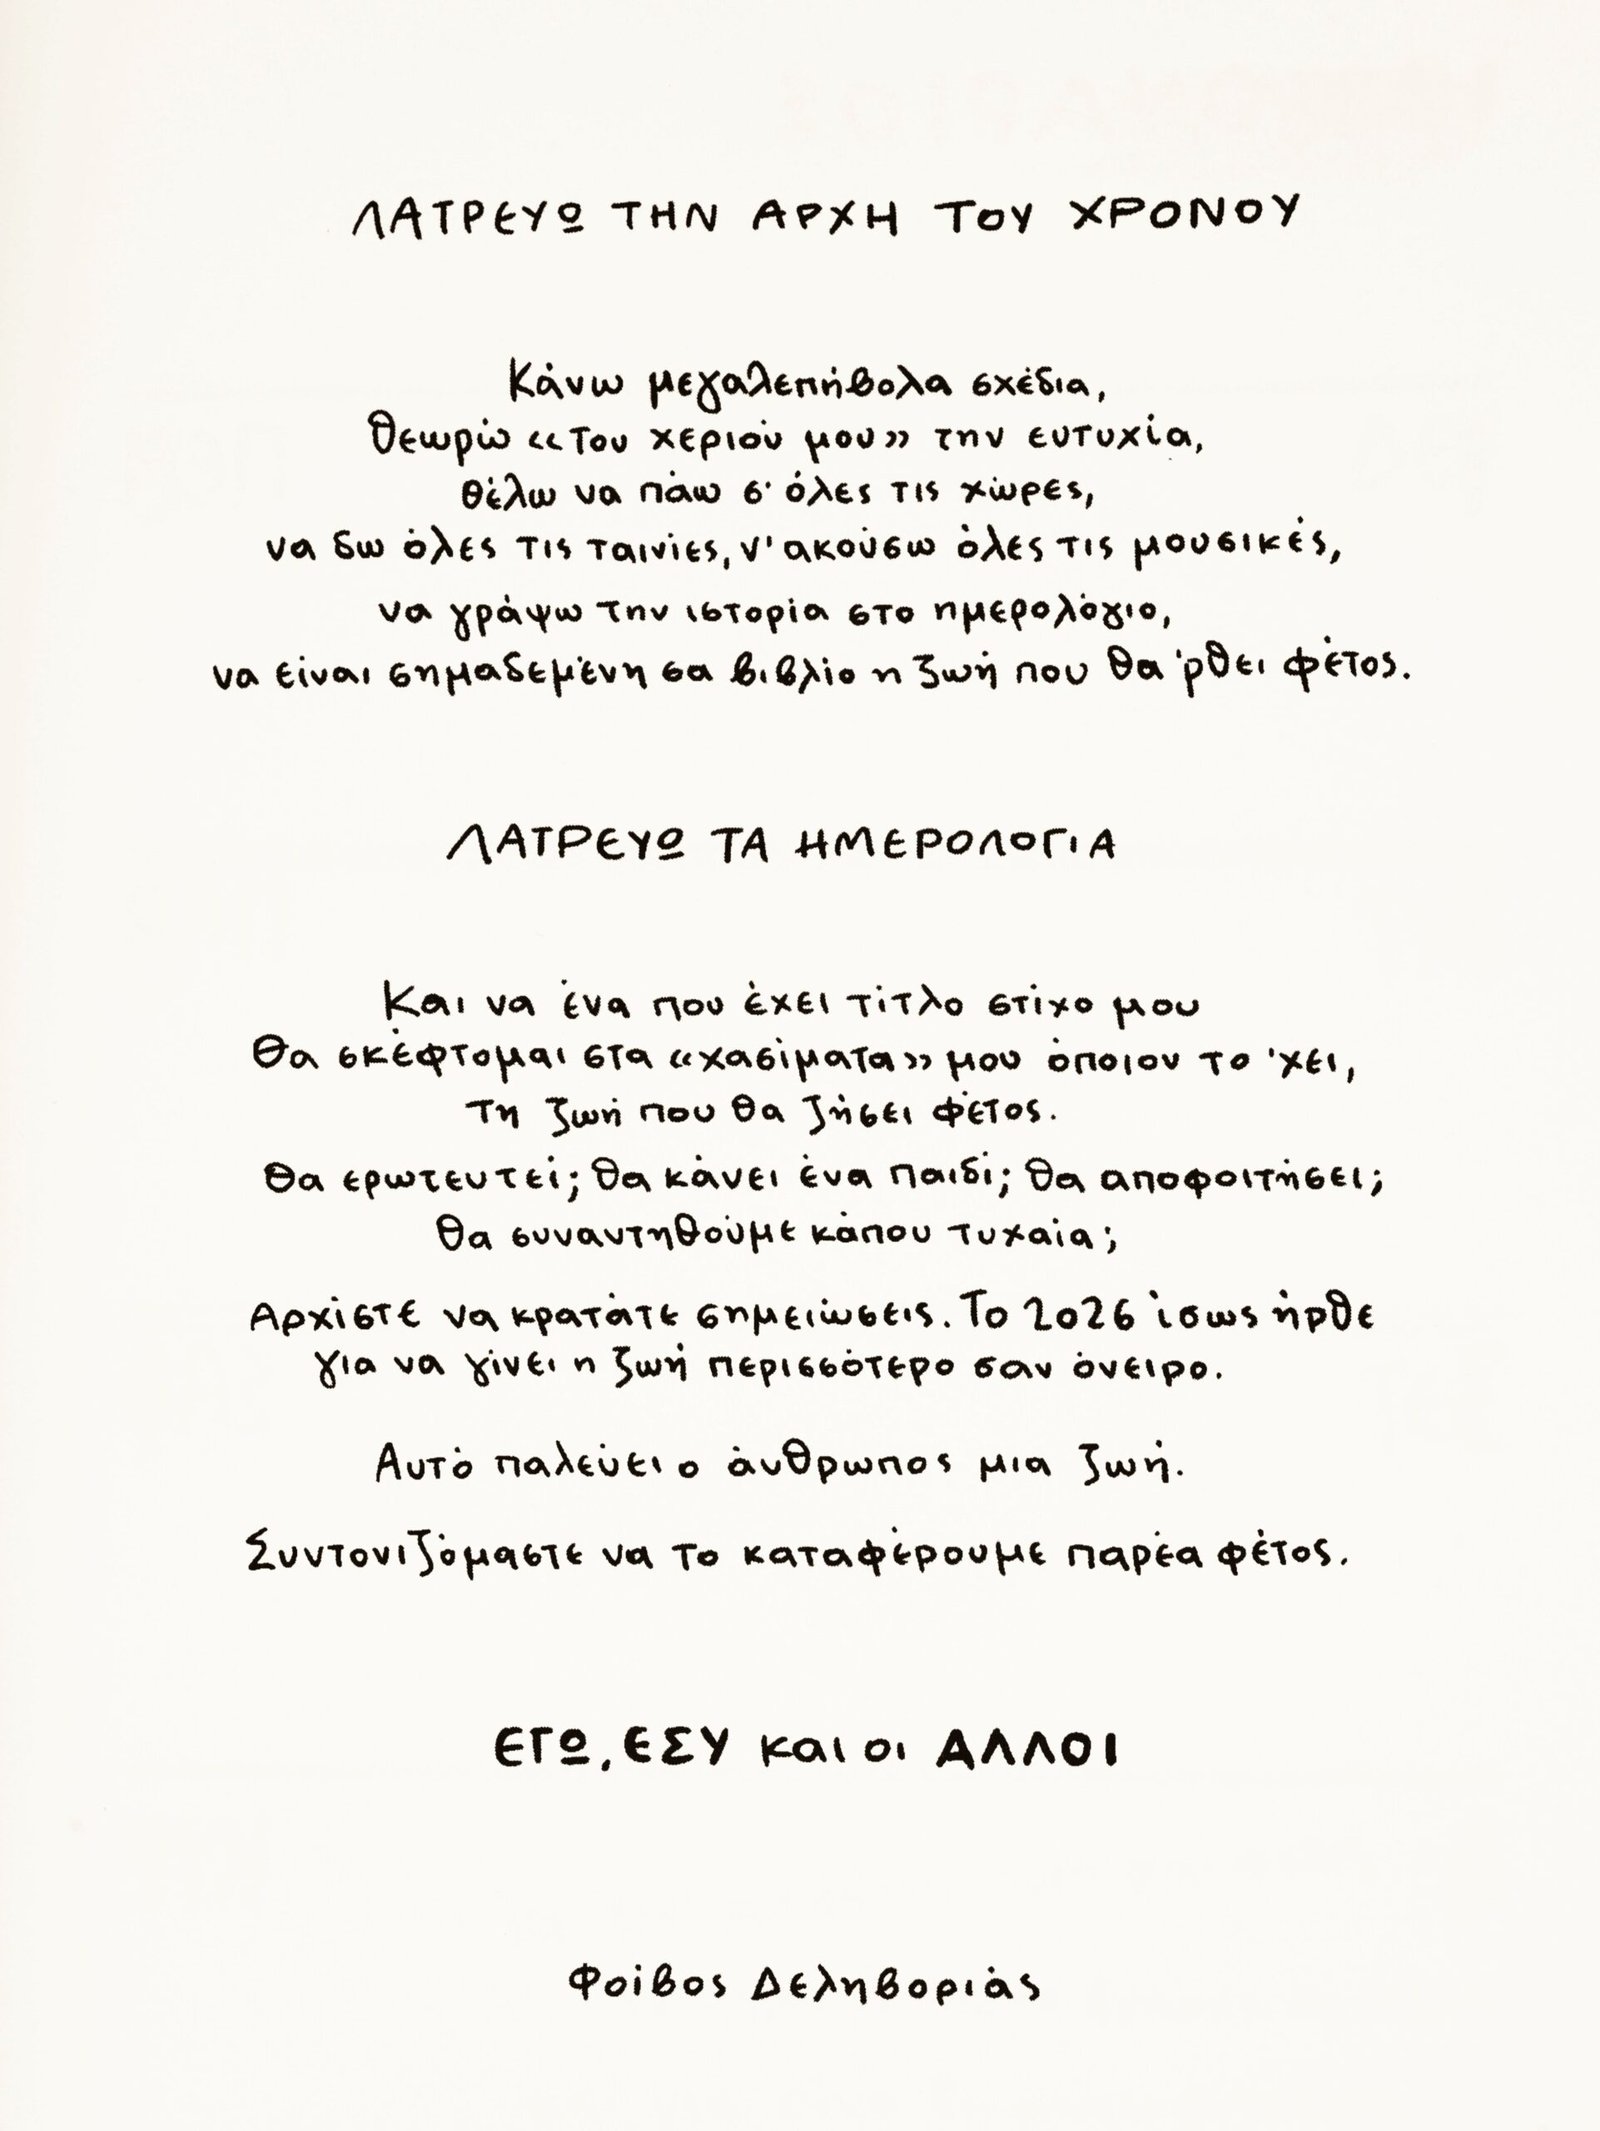 ΛΑΤΡΕΥΩ ΤΗΝ ΑΡΧΗ ΤΟΥ ΧΡΟΝΟΥ
Κάνω μεγαλεπήβολα σχέδια,
θεωρώ «του χεριού μου» την ευτυχία,
θέλω να πάω σ' όλες τις χώρες,
να δω όλες τις ταινίες, ν' ακούσω όλες τις μουσικές,
να γράψω την ιστορία στο ημερολόγιο,
να είναι σημαδεμένη σα βιβλίο η ζωή που θα 'ρθει φέτος.
ΛΑΤΡΕΥΩ ΤΑ ΗΜΕΡΟΛΟΓΙΑ
Και να ένα που έχει τίτλο στίχο μου
Θα σκέφτομαι στα «χασίματα» μου όποιον το 'χει,
τη ζωή που θα ζήσει φέτος.
Θα ερωτευτεί; θα κάνει ένα παιδί; θα αποφοιτήσει;
θα συναντηθούμε κάπου τυχαία;
Αρχίστε να κρατάτε σημειώσεις. Το 2026 ίσως ήρθε
για να γίνει η ζωή περισσότερο σαν όνειρο.
Αυτό παλεύει ο άνθρωπος μια ζωή.
Συντονιζόμαστε να το καταφέρουμε παρέα φέτος.
ΕΓΩ, ΕΣΥ και οι ΑΛΛΟΙ
Φοίβος Δεληβοριάς